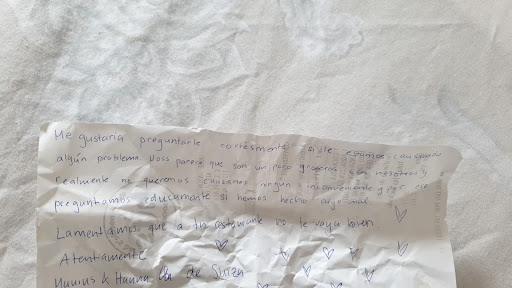 Me gustaría preguntarle cortésmente si le estamos causando
algún problema. Nos parece que son un poco groseros con nosotros y
realmente no queremos causarnos ningun inconveniente y por eso
preguntamos educamante si hemos hecho algo mal.
Lamentamos que a tu restaurante no le vaya bien.
Atentamente
& Hanna de Suiza